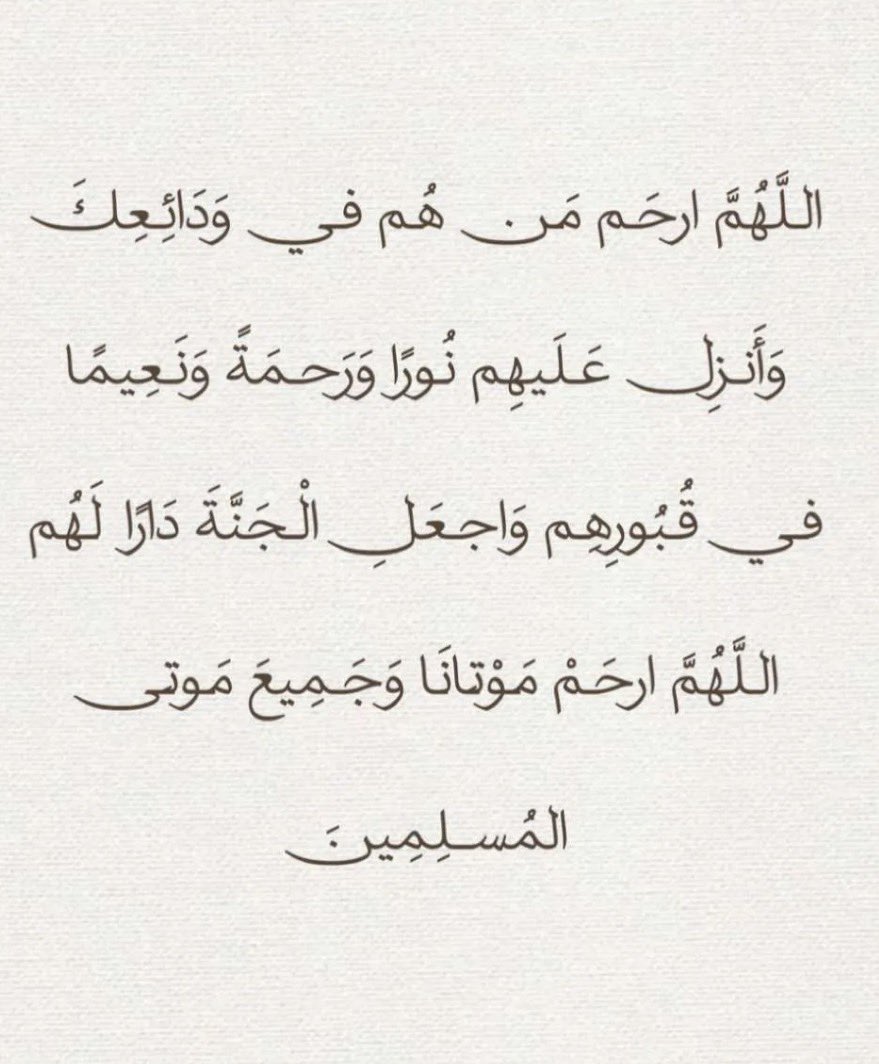 اللَّهُمَّ ارحَم مَن هُم في وَدَائِعِكَ
وَأَنزِل عَلَيهِم نُورًا وَرَحمَةً وَنَعِيمًا
في قُبُورِهِم وَاجعَلِ الْجَنَّةَ دَارًا لَهُم
اللَّهُمَّ ارحَمْ مَوْتانَا وَجَمِيعَ مَوتى
المُسلِمِينَ